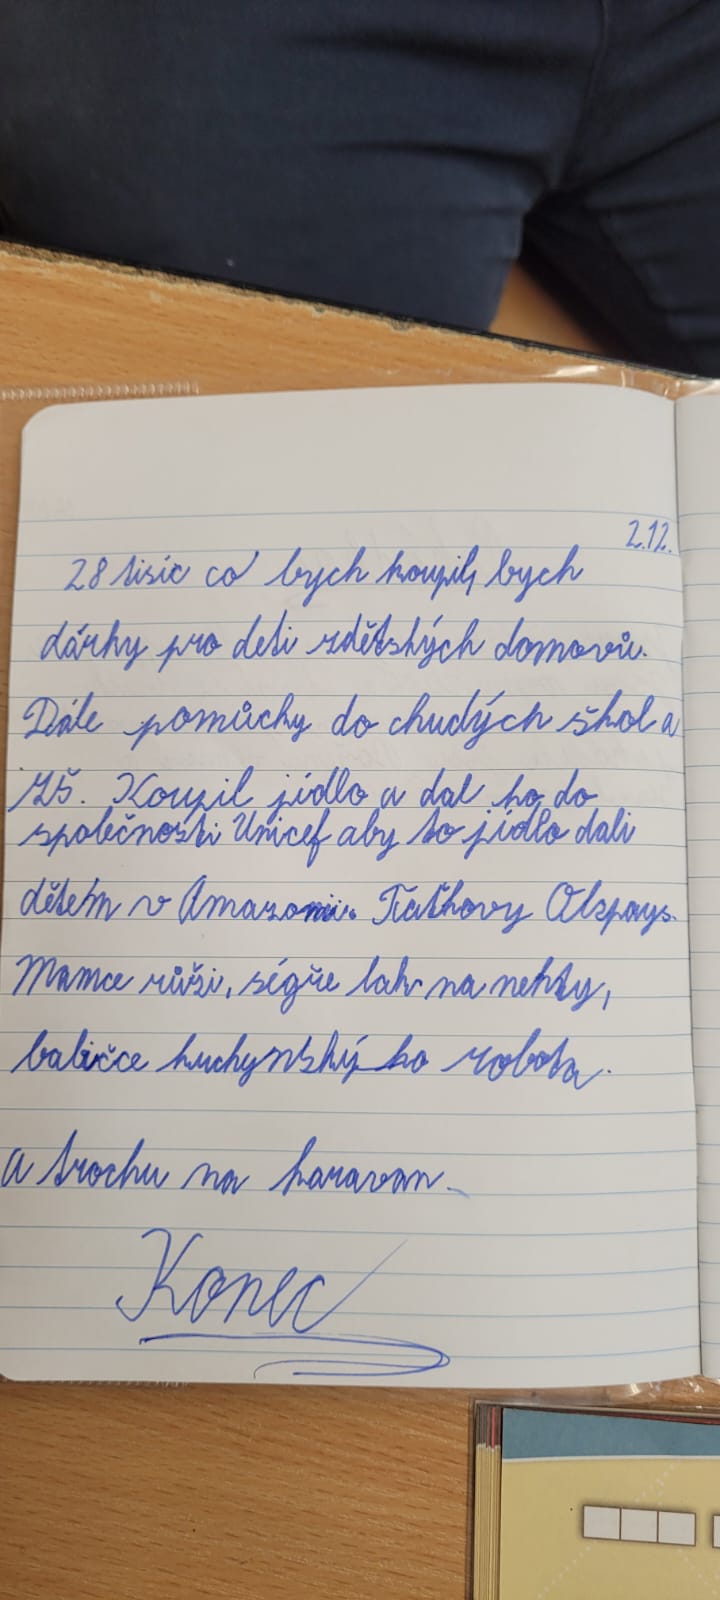 2.12.
28 tisíc co bych koupil, bych
dárky pro deti zdětských domovů.
Dále pomůcky do chudých škol a
ZŠ. Koupil jídlo a dal ho do
společnosti Unicef aby to jídlo dali
dětem v Amazonii. Taťkovy
Mamce růži, ségře lak na nehty,
babičce kuchynský ho robota.
a trochu na karavan.
Konec